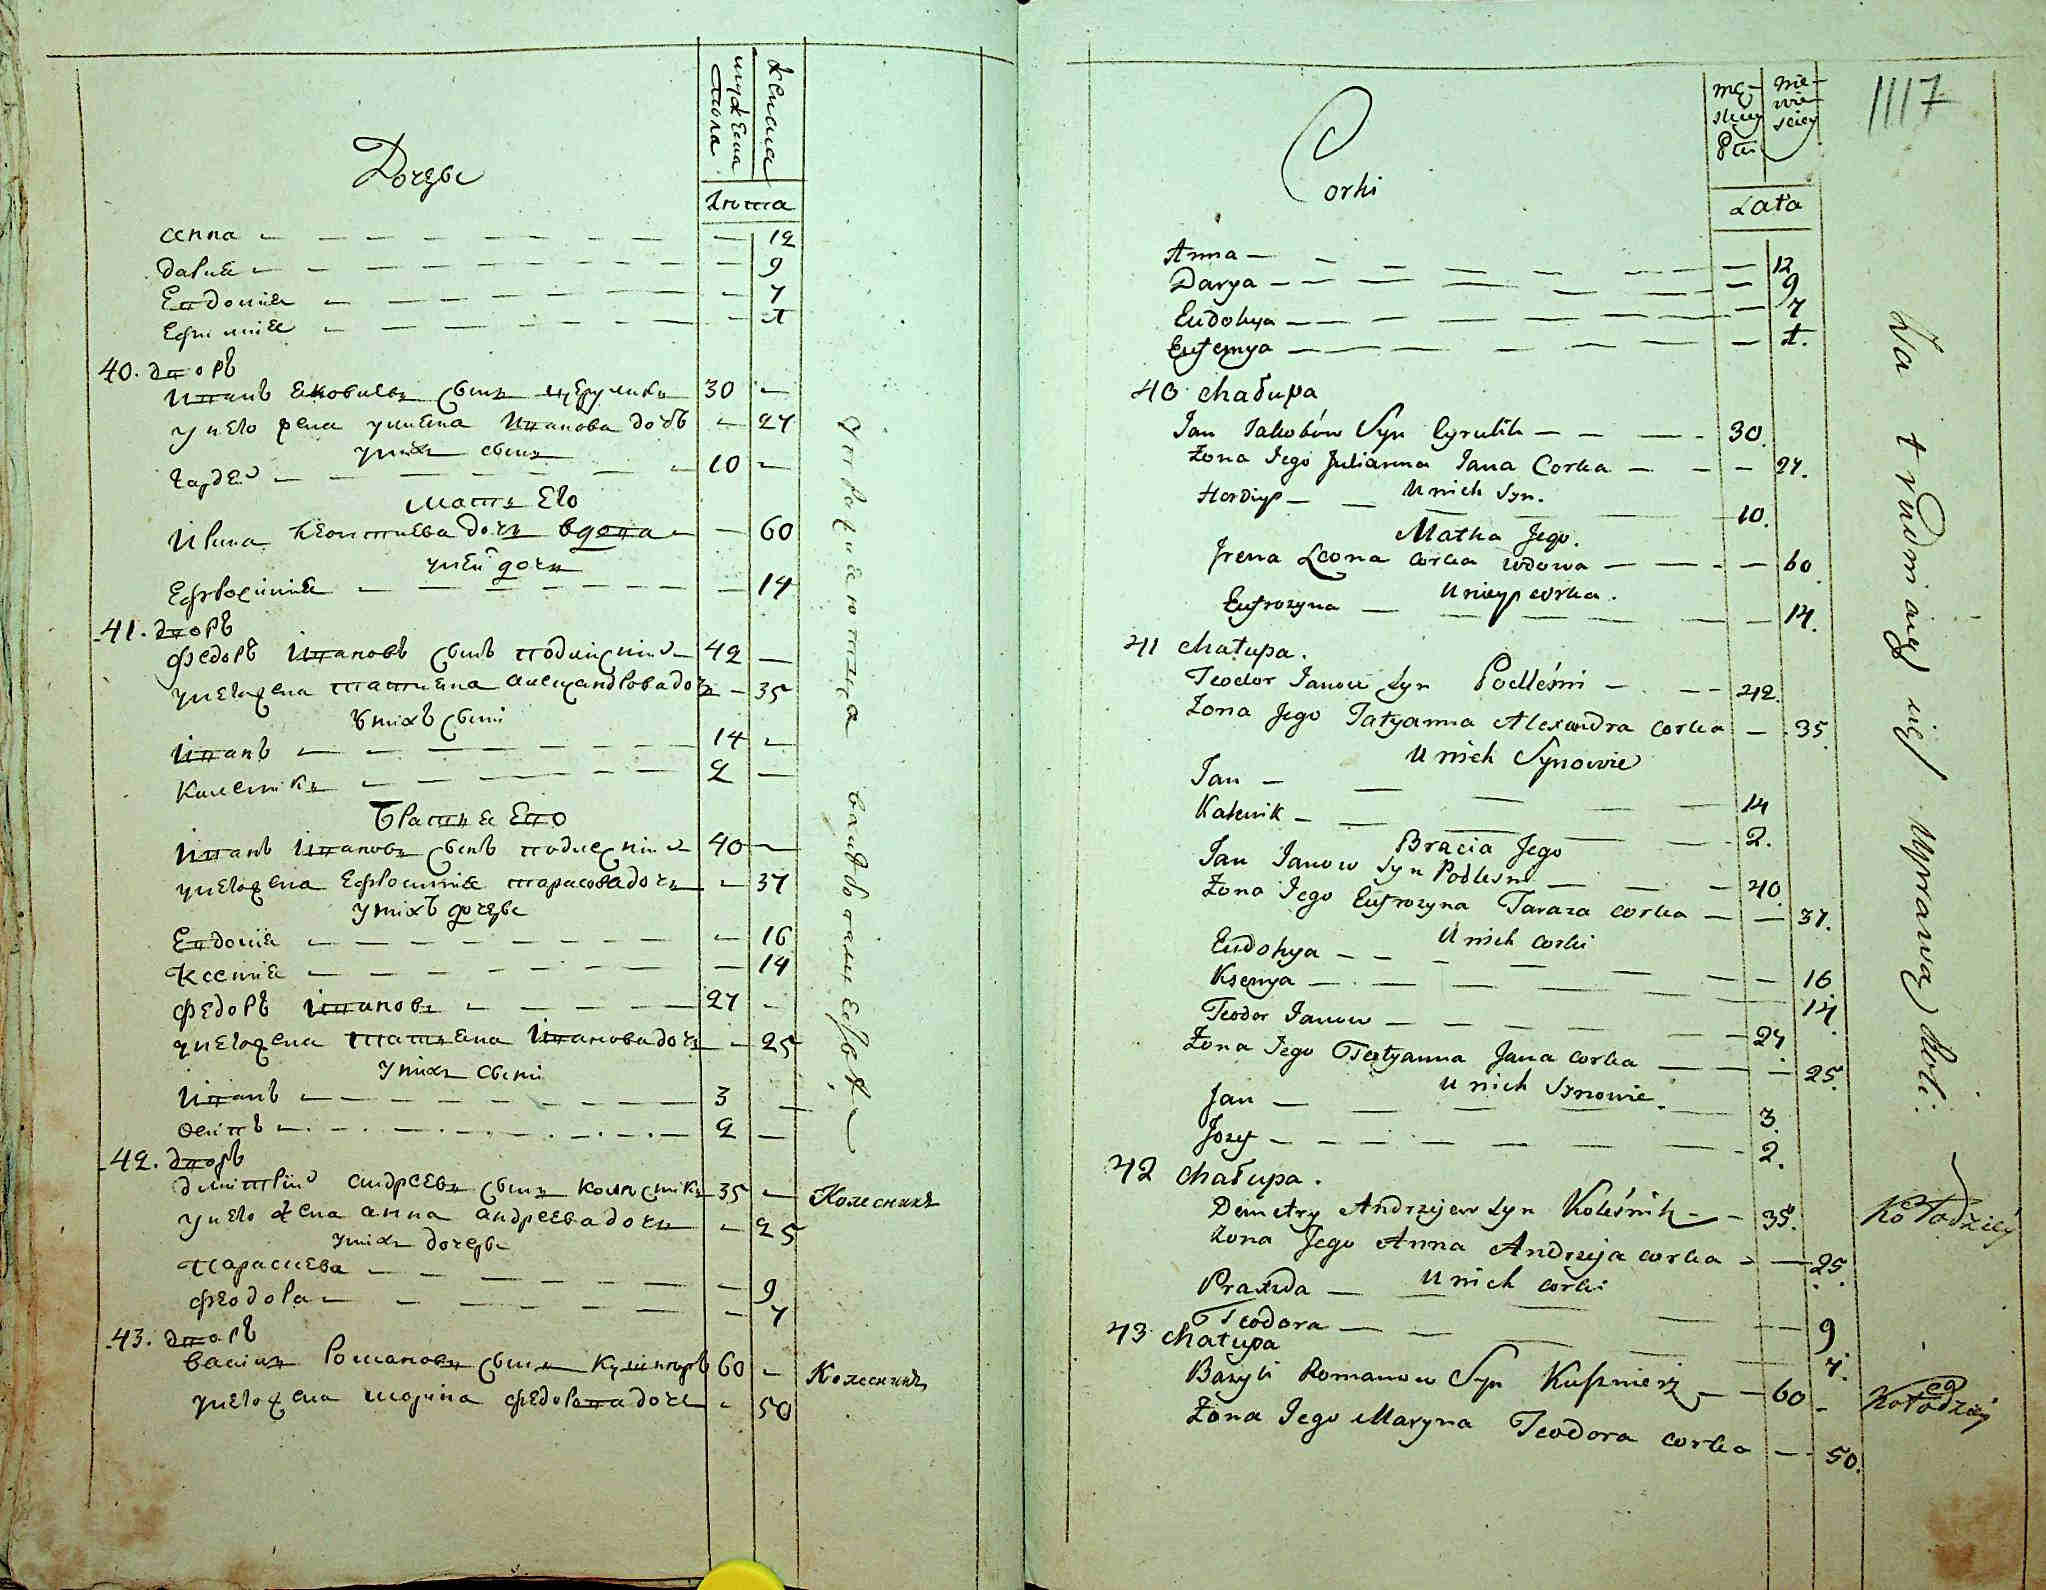 Дочерѣ
мужеска пола
женска
Лѣта
анна — 12
дариа — 9
Евдокиа — 7
Ефимиа — 1
40. дворъ
Иванъ Яковлевъ сынъ — 30
у него жена улиана Иванова дочь — 27
у нихъ сынъ
Гардей — 10
мать Его
Ирина Леонтиева дочь вдова — 60
у ней дочь
Ефросиниа — 14
41. дворъ
Федоръ Ивановъ сынъ подлесній — 42
у него жена татиана александрова дочь — 35
у нихъ сыни
Иванъ — 14
Калеников — 2
Братиа Его
Иванъ Ивановъ сынъ подлесній — 40
у него жена Ефросиниа тарасова дочь — 37
у нихъ дочерѣ
Евдокиа — 16
Ксениа — 14
Федоръ Ивановъ — 27
у него жена татиана Иванова дочь — 25
у нихъ сыни
Иванъ — 3
Осипъ — 2
42. дворъ
димитрій андреевъ сынъ колесникъ — 35 — Колесникъ
у него жена анна андреева дочь — 25
у нихъ дочерѣ
Парасиева — 9
Феодора — 7
43. дворъ
василь Романовъ сынъ — 60 — Колесникъ
у него жена марина Федорова дочь — 50
1117
Corki
męskiey płci
niewiesciey
Lata
Anna — 12
Darya — 9
Eudokya — 7
Eufemya — 1.
40 chałupa
Jan Jakobów Syn Cyrulik — 30.
Żona Jego Julianna Jana Corka — 27.
U nich Syn.
Hordiy — 10.
Matka Jego.
Jrena Leona corka wdowa — 60.
U niey corka.
Eufrozyna — 14.
41 chałupa.
Teodor Janow Syn Podleśni — 42.
Żona Jego Tatyanna Alexandra corka — 35.
U nich Synowie
Jan — 14
Kalenik — 2.
Bracia Jego
Jan Janow Syn Podlesni — 40.
Żona Jego Eufrozyna Taraza corka — 37.
U nich corki
Eudokya — 16
Ksenya — 14.
Teodor Janow — 27.
Żona Jego Tatyanna Jana corka — 25.
U nich Synowie.
Jan — 3.
Jozef — 2.
42 chałupa.
Demetry Andrzejew Syn Koleśnik — 35. Kołodziey
Żona Jego Anna Andrzeja corka — 25.
U nich corki
Praxeda — 9
Teodora — 7.
43 chałupa
Bazyli Romanow Syn Kuśznierz — 60 — Kołodziey
Żona Jego Maryna Teodora corka — 50.
Zatrudniaią się Uprawą Roli.